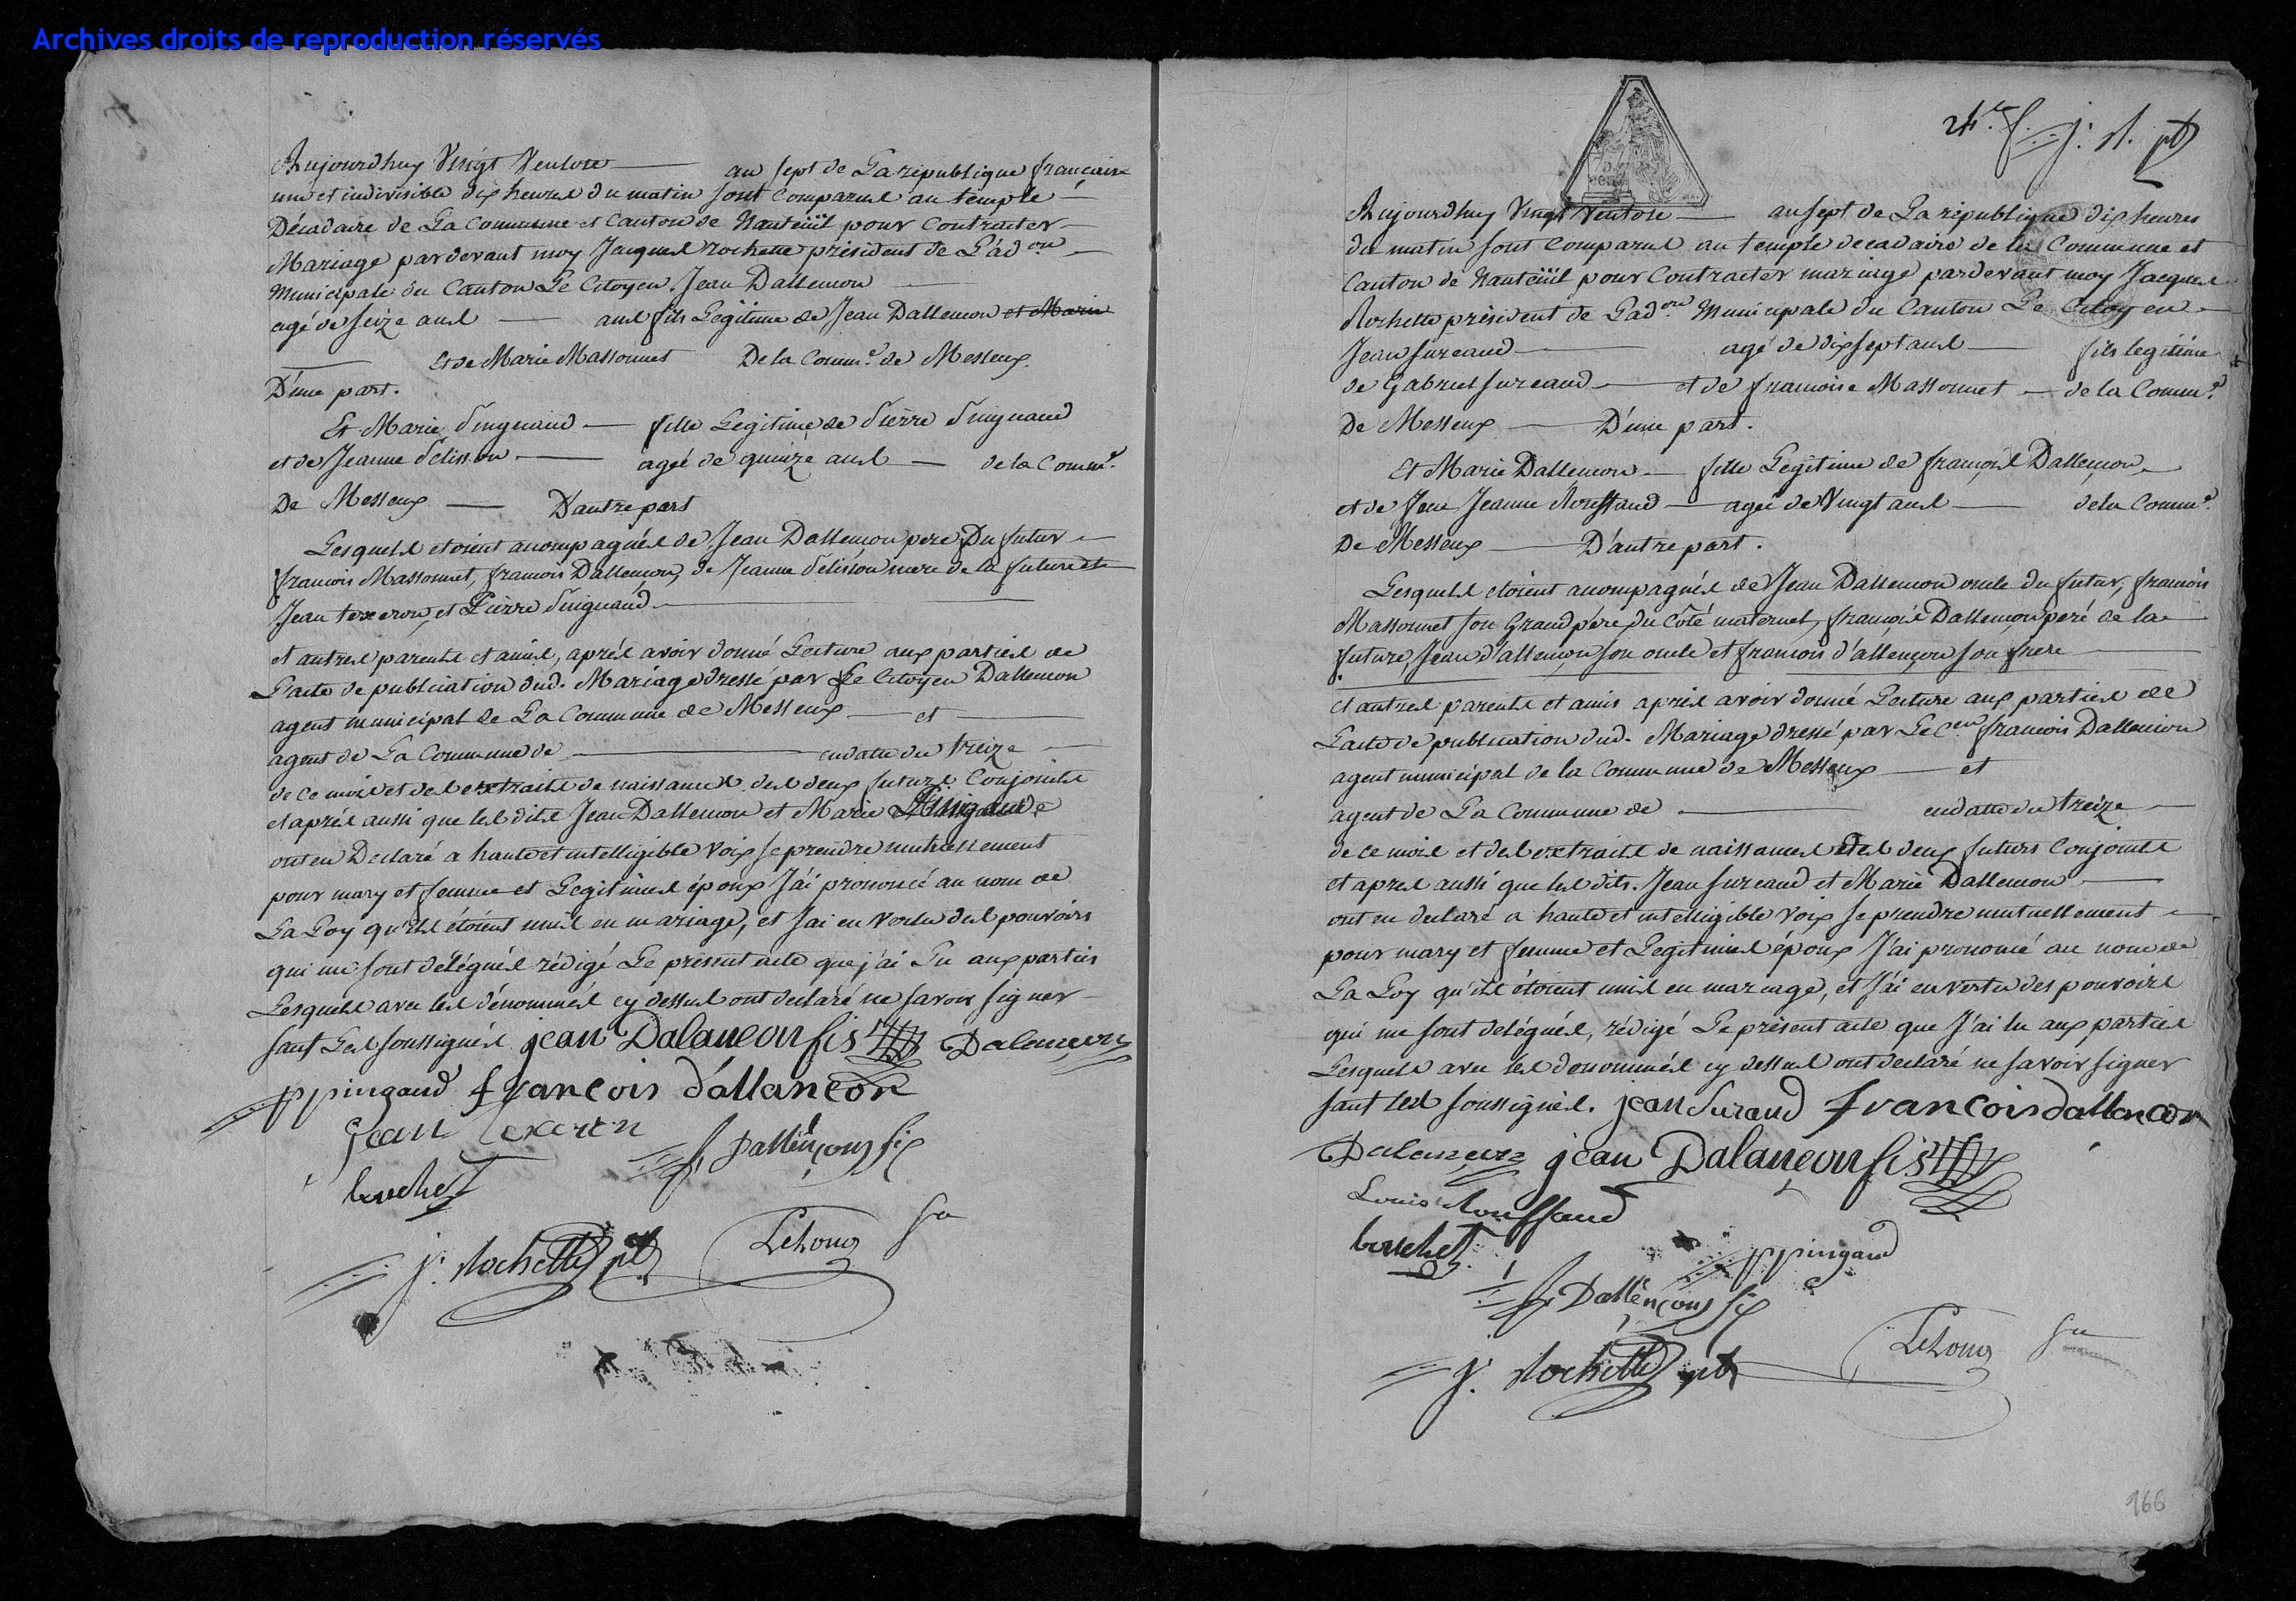 Archives droits de reproduction réservés
Aujourdhuy Vingt Ventose an sept de La république françaire
une et indivisible dix heures du matin sont Comparus au temple
Décadaire de La Commune et Canton de Nanteüil pour Contracter
Mariage pardevant moy Jacques Rochette président de L'ad.on
Municipale du Canton Le Citoyen Jean Dallemcon
agé de seize ans ans fils Légitime de Jean Dallemcon et Marie
Et de Marie Massonnet De la Comm.e de Messeux
D'une part.
Et Marie Pinguaud fille Légitime de Pierre Pinguaud
et de Jeanne Pelisson agée de quinze ans de la Comm.e
De Messeux D'autre part
Lesquels etoient acompagnés de Jean Dallemcon pere Du futur
francois Massonnet, francois Dallemcon, de Jeanne Pelisson mere de la future et
Jean texeron, et Pierre Pinguaud
et autres parents et amis, aprés avoir donné Lecture aux parties de
L'acte de publication dud. Mariage dressé par Le Citoyen Dallemcon
agent municipal de La Commune de Messeux et
agent de La Commune de endatte du treize
de ce mois et des extraits de naissances des deux futurs Conjoints
et aprés aussi que les dits Jean Dallemcon et Marie
ont eu Declaré a haute et intelligible Voix se prendre mutuellement
pour mary et femme et Legitimes époux J'ai prononcé au nom de
La Loy qu'ils étoient unis en mariage, et J'ai en Vertu des pouvoirs
qui me sont délégués rédigé Le présent acte que j'ai Lu aux parties
Lesquels avec les dénommés cy dessus ont déclaré ne savoir signer
sauf Les soussignés jean Dalancon fis Dalençon
ppingaud francois dallancon
jean texeron
f Dallençon fis
bouchet
j. Rochette pt Lehoux Sre
24.e f. j. R. pt
Aujourdhuy Vingt Ventose an sept de La république dix heures
du matin sont Comparus au temple decadaire de la Commune et
Canton de Nanteüil pour Contracter mariage pardevant moy Jacques
Rochette président de L'ad.on Municipale du Canton Le Citoyen
Jean sureaud agé de dix sept ans fils legitime
de Gabriel sureaud et de francoise Massonnet de la Comm.e
De Messeux D'une part.
Et Marie Dallemcon fille Legitime de françois Dallemçon
et de Jeanne Rouffaud agée de Vingt ans de la Comm.e
De Messeux D'autre part.
Lesquels etoient acompagnés de Jean Dallemcon oncle du futur, francois
Massonnet son Grand pere du Côté maternel, françois Dallemçon peré de la
future, Jean d'allençon son oncle et francois d'allençon son frere
et autres parents et amis aprés avoir donné Lecture aux parties de
L'acte de publication dud. Mariage dressé par Le C.en francois Dallemcon
agent municipal de la Commune de Messeux et
agent de La Commune de endatte du treize
de ce mois et des extraits de naissances des deux futurs Conjoints
et apres aussi que les dits. Jean sureaud et Marie Dallemcon
ont eu declaré a haute et intelligible Voix se prendre mutuellement
pour mary et femme et Legitimes époux J'ai prononcé au nom de
La Loy qu'ils étoient unis en mariage, et J'ai en vertu des pouvoirs
qui me sont delégués, rédigé Le présent acte que J'ai lu aux parties
Lesquels avec les dénommés cy dessus ont déclaré ne savoir signer
sauf Les soussignés. jean Suraud francois dallancon
Dalençon jean Dalançon fis
Louis Rouffaud
bouchet ppingaud
f Dallençon fis
j. Rochette pt Lehoux Sre
166